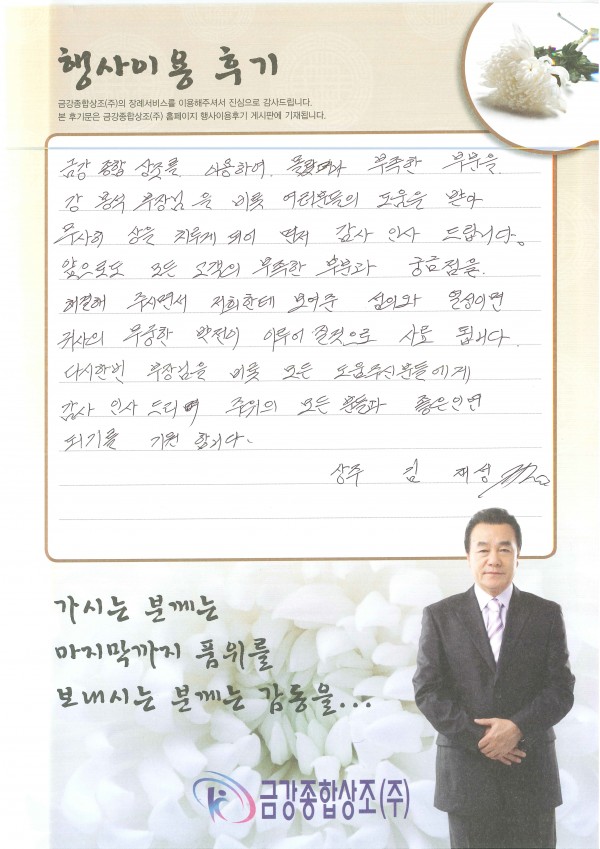 행사이용 후기
금강종합상조(주)의 장례서비스를 이용해주셔서 진심으로 감사드립니다.
본 후기문은 금강종합상조(주) 홈페이지 행사이용후기 게시판에 기재됩니다.
금강 종합 상조를 사용하여, 부족한 부분을
강 용석 부장님을 비롯 여러분들의 도움을 받아
무사히 상을 치루게 되어 먼저 감사 인사 드립니다.
앞으로도 모든 고객의 부족한 부분과 궁금점을
해결해 주시면서 저희한테 보여준 성의와 열성이면
귀사의 무궁한 발전이 이루어 질것으로 사료 됩니다.
다시한번 부장님을 비롯 모든 도움주신분들에게
감사 인사 드리며 주위의 모든 분들과 좋은인연
되기를 기원 합니다.
상주 김 재성
가시는 분께는
마지막까지 품위를
보내시는 분께는 감동을...
금강종합상조(주)